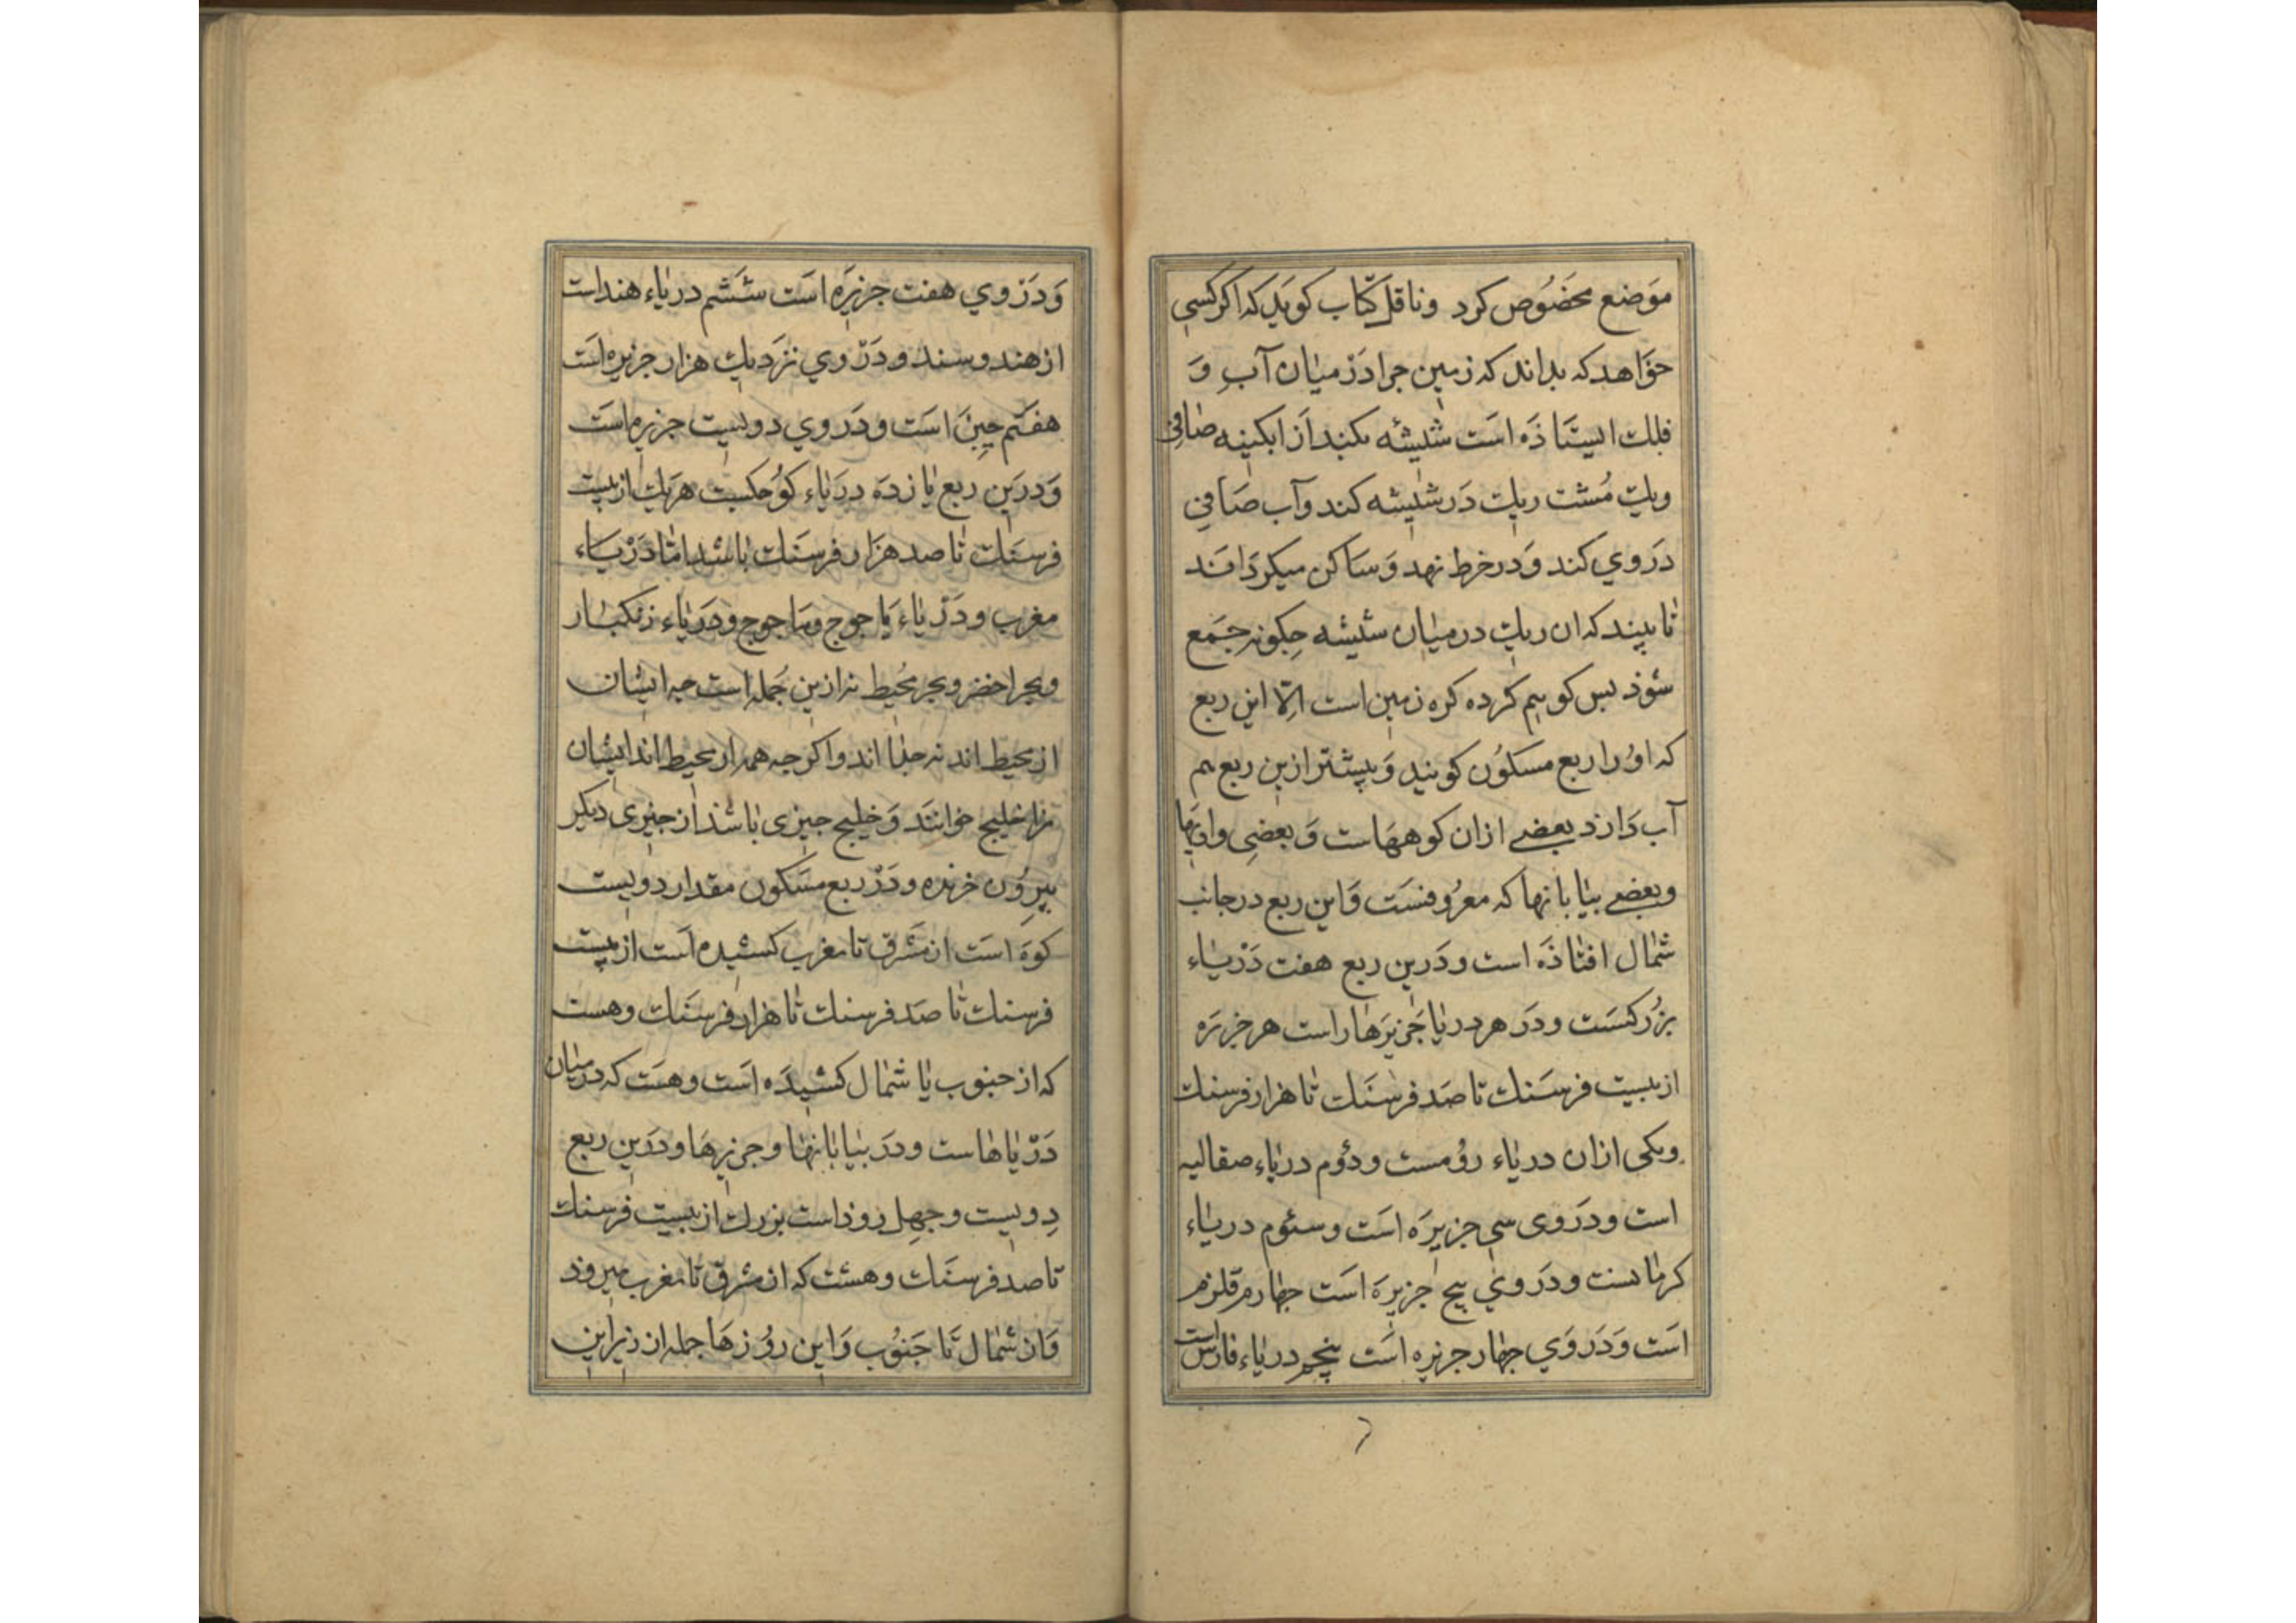 موَضع مخصُوص کرد وناقل کتاب کویَد که اکر کسی
خوَاهد که بداند که زمین جرا دَرْ میان آبِ وَ
فلک ایستَاذَه است شیشه بکند اَز ابکینه صافی
ویک مُشت ریك دَر شیشه کند وآب صَافی
دَر وي کند وَدر خرط نهد وَسَاکن میکردَانَد
تا ببیند که ان ریك در میان شیشه جِکونه جَمَع
شوذ بس کویم کرده کره زمین است الّا این ربع
که اوُ را ربع مسکوُن کویند وَبیشتر ازین ربع هم
آب دَارد بعضی ازان کوههَاست وَبعضی وادیَها
وبعضی بیابانها که معرُوفنسَت وَاین ربع در جانب
شمال افتاذَه است ودَرین ربع هفت دَرْیاء
بزُرکسَت ودَر هر دریا جَزیرَها راست هر جزیرَه
از بیست فرسَنك تا صَد فرسَنَك تا هزار فرسنك
ویکی ازان دریاء روُمست ودوُم دریاء صقالیه
است ودَر وی سی جزیرَه اسَت وسئوم دریاء
کرمانست ودَر ویِ بیج جزیرَه اسَت جهارم قلزم
اسَت وَدَر وَي جهار جزیره اسَت پنجم دریاء فارس است
وَدَرْ وي هفت جزیرَه اسَت ششَم دریاء هند است
از هند وسند ودَرْ وي نزَدیك هزار جزیره اسَت
هفتَم جینَ اسَت ودَر وي دویست جزیره اسَت
وَدرین ربع یازدَه دریاء کوُجکست هریك از بیست
فرسَنك تا صد هزَار فرسَنَك باشد امّا دَرْیَاء
مغرب ودَرْیاء یَاجوج ومَاجوج ودَریاء زنکبار
وبحر اخضر وبحر مُحیط نه ازین جُمله است جه ایشان
از محیط اند نه جدا اند واکر جه همه از محیط اند ایشان
را خلیج خوانَند وَخلیج جیزی باشد از جیزی دیکر
بیروُن خزیده ودَرْ ربع مسَکون مقدار دویست
کوهَ اسَت از مَشرق تا مغرب کشیده اسَت از بیست
فرسنك تا صَد فرسنك تا هزار فرسَنَك وهست
که از جنوب یا شمال کشیدَه اسَت وهسَت که در میان
دَرْیاهاست ودَر بیابانها وجزیرهَا ودَرین ربع
دِویست وجهل روذ است بزرك از بیست فرسنك
تا صد فرسَنَك وهست که از مشرق تا مغرب میروذ
وَاز شمال تَا جَنوُب وَاین روُزهَا جمله از زیر این